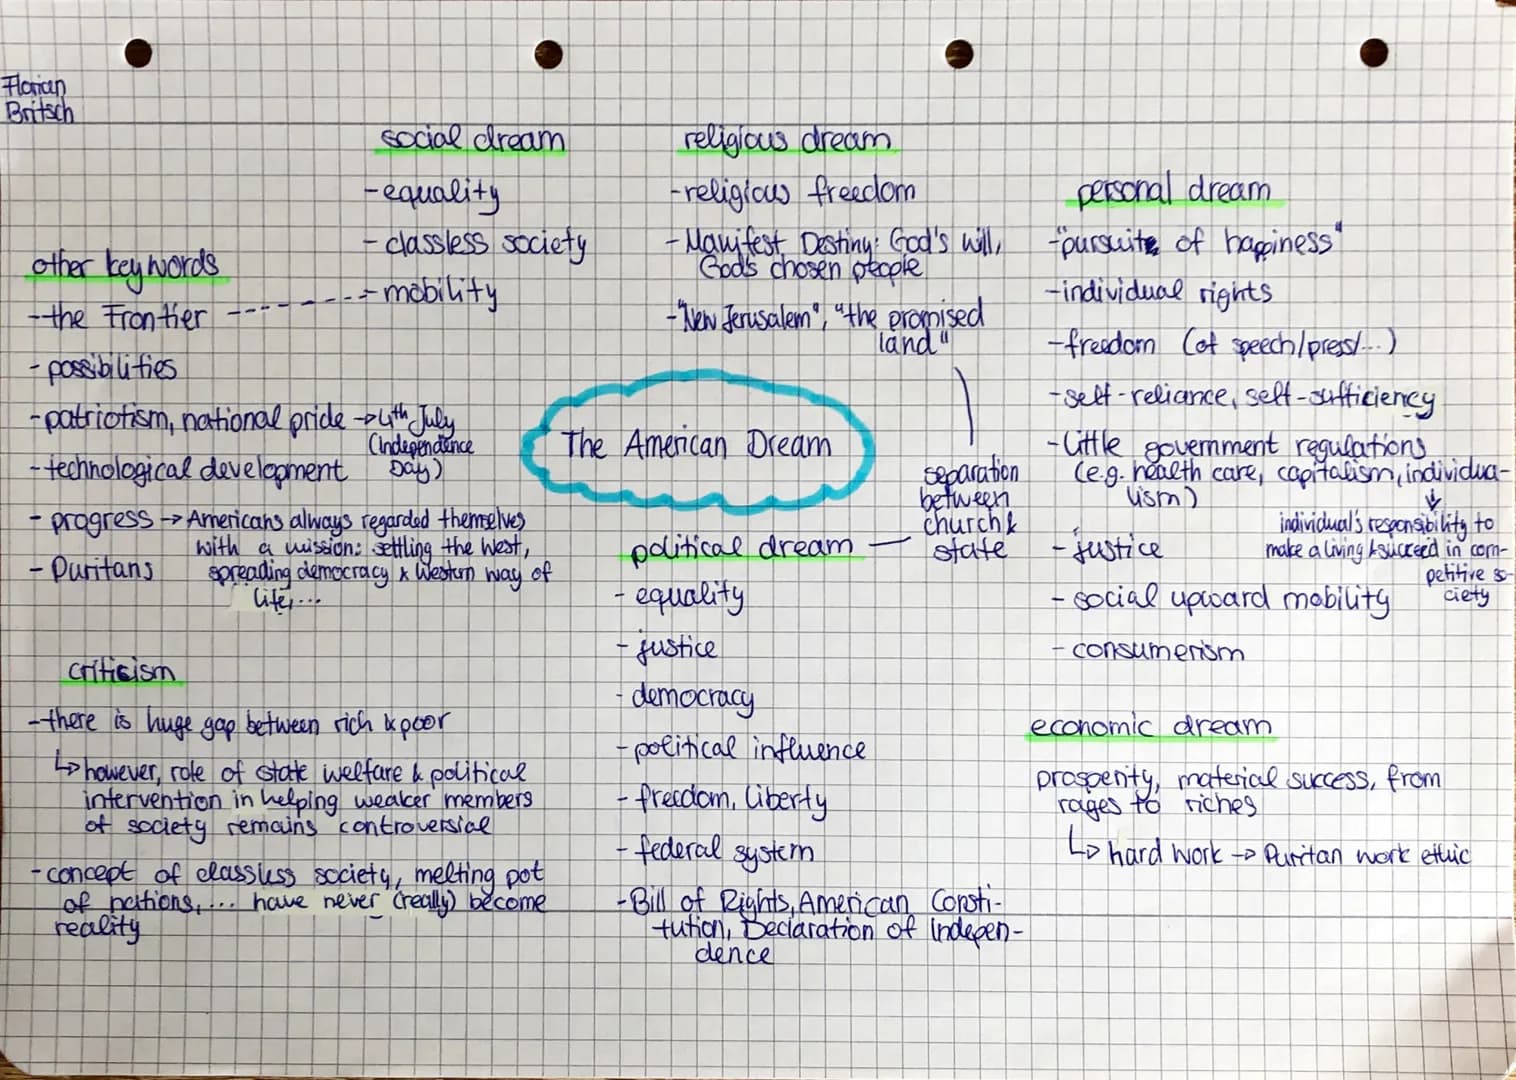 Florian
Britsch
social dream
-equality
- classless society
- mobility
religious dream
-religious freedom
- Manifest Destiny: God's will,
God's chosen people
-"New Jerusalem", "the promised
land"
personal dream
-"pursuit of happiness"
-individual rights
-freedom (of speech/press/...)
-self-reliance, self-sufficiency
-little government regulations
(e.g. health care, capitalism, individua-
lism)
individual's responsibility to
make a living & succeed in com-
petitive so-
ciety
- justice
- social upward mobility
- consumerism
other key words
-the Frontier
- possibilities
-patriotism, national pride -> 4th July
(Independence
Day)
-technological development
- progress -> Americans always regarded themselves
with a mission: settling the West,
spreading democracy & Western way of
life,...
- Puritans
The American Dream
separation
between
church &
state
political dream
- equality
- justice
- democracy
- political influence
- freedom, liberty
- federal system
-Bill of Rights, American Consti-
tution, Declaration of Indepen-
dence
criticism
-there is huge gap between rich & poor
↳ however, role of state welfare & political
intervention in helping weaker members
of society remains controversial
-concept of classless society, melting pot
of nations,... have never (really) become
reality
economic dream
prosperity, material success, from
rages to riches
↳ hard work -> Puritan work ethic